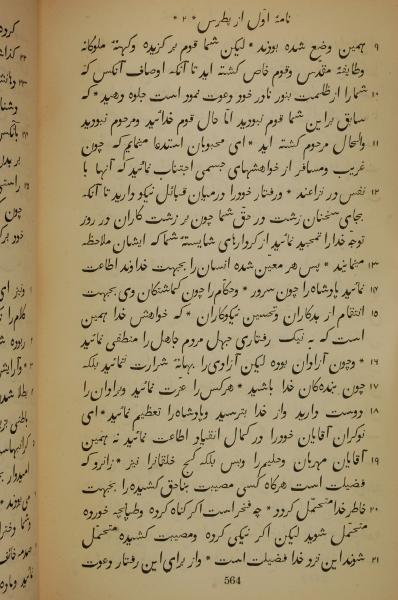 نامهٔ اوّل از پطرس * ۲ *
۹ همین وضع شده بودند * لیکن شما قوم برگزیده و کهنهٔ ملوکانه
و طایفهٔ مقدّس و قوم خاص گشته اید تا آنکه اوصاف آنکس که
۱۰ شما را از ظلمت بنور نادر خود دعوت نمود است جلوه دهید * که
سابق براین شما قوم نبودید امّا حال قوم خدائید و مرحوم نبودید
۱۱ و الحال مرحوم گشته اید * ای محبوبان استدعا مینمایم که چون
غریب و مسافر از خواهشهای جسمی اجتناب نمائید که آنها با
۱۲ نفس در نزاعند * و رفتار خود را درمیان قبائل نیکو دارید تا آنکه
بجای سخنان زشت در حقّ شما چون بر زشت کاران در روز
توجّه خدا را تمجید نمائید از کردارهای شایستهٔ شما که ایشان ملاحظه
۱۳ مینمایند * پس هر معین شده انسان را بجهت خداوند اطاعت
۱۴ نمائید پادشاه را چون سرور * و حکّام را چون گماشتگان وی بجهت
۱۵ انتقام از بدکاران و تحسین نیکوکاران * که خواهش خدا همین
است که به نیک رفتاری جهل مردم جاهل را منطفی نمائید
۱۶ * و چون آزادان بوده لیکن آزادی را بهانهٔ شرارت ننمائید بلکه
۱۷ چون بندهکان خدا باشید * هرکس را عزت نمائید و برادران را
۱۸ دوست دارید و از خدا بترسید و پادشاه را تعظیم نمائید * ای
نوکران آقایان خود را در کمال انقیاد اطاعت نمائید نه همین
۱۹ آقایان مهربان و حلیم را و بس بلکه کج خلقانرا نیز * زانرو که
فضیلت است هرگاه کسی مصیبت بناحق کشیده را بجهت
۲۰ خاطر خدا متحمّل گردد * چه فخر است اگر گناه کرده و طپانچه خورده
متحمّل شوید لیکن اگر نیکی کرده و مصیبت کشیده متحمّل
۲۱ شوند این نزد خدا فضیلت است * و از برای این رفتار دعوت
564